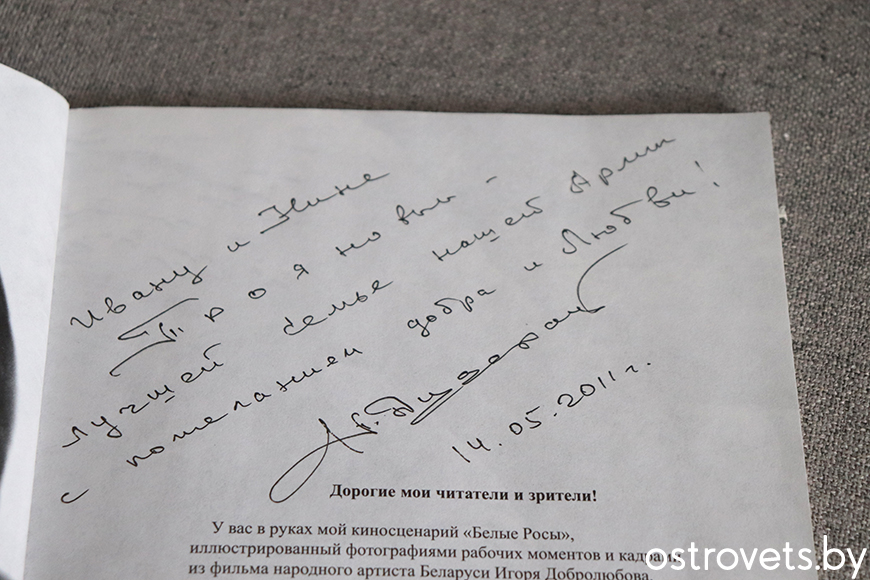 Ивану и Нине
Трояновым -
лучшей семье нашей Армии
с пожеланием добра и Любви!
14.05.2011г.
Дорогие мои читатели и зрители!
У вас в руках мой киносценарий «Белые Росы»,
иллюстрированный фотографиями рабочих моментов и кадрами
из фильма народного артиста Беларуси Игоря Добролюбова.
ostrovets.by